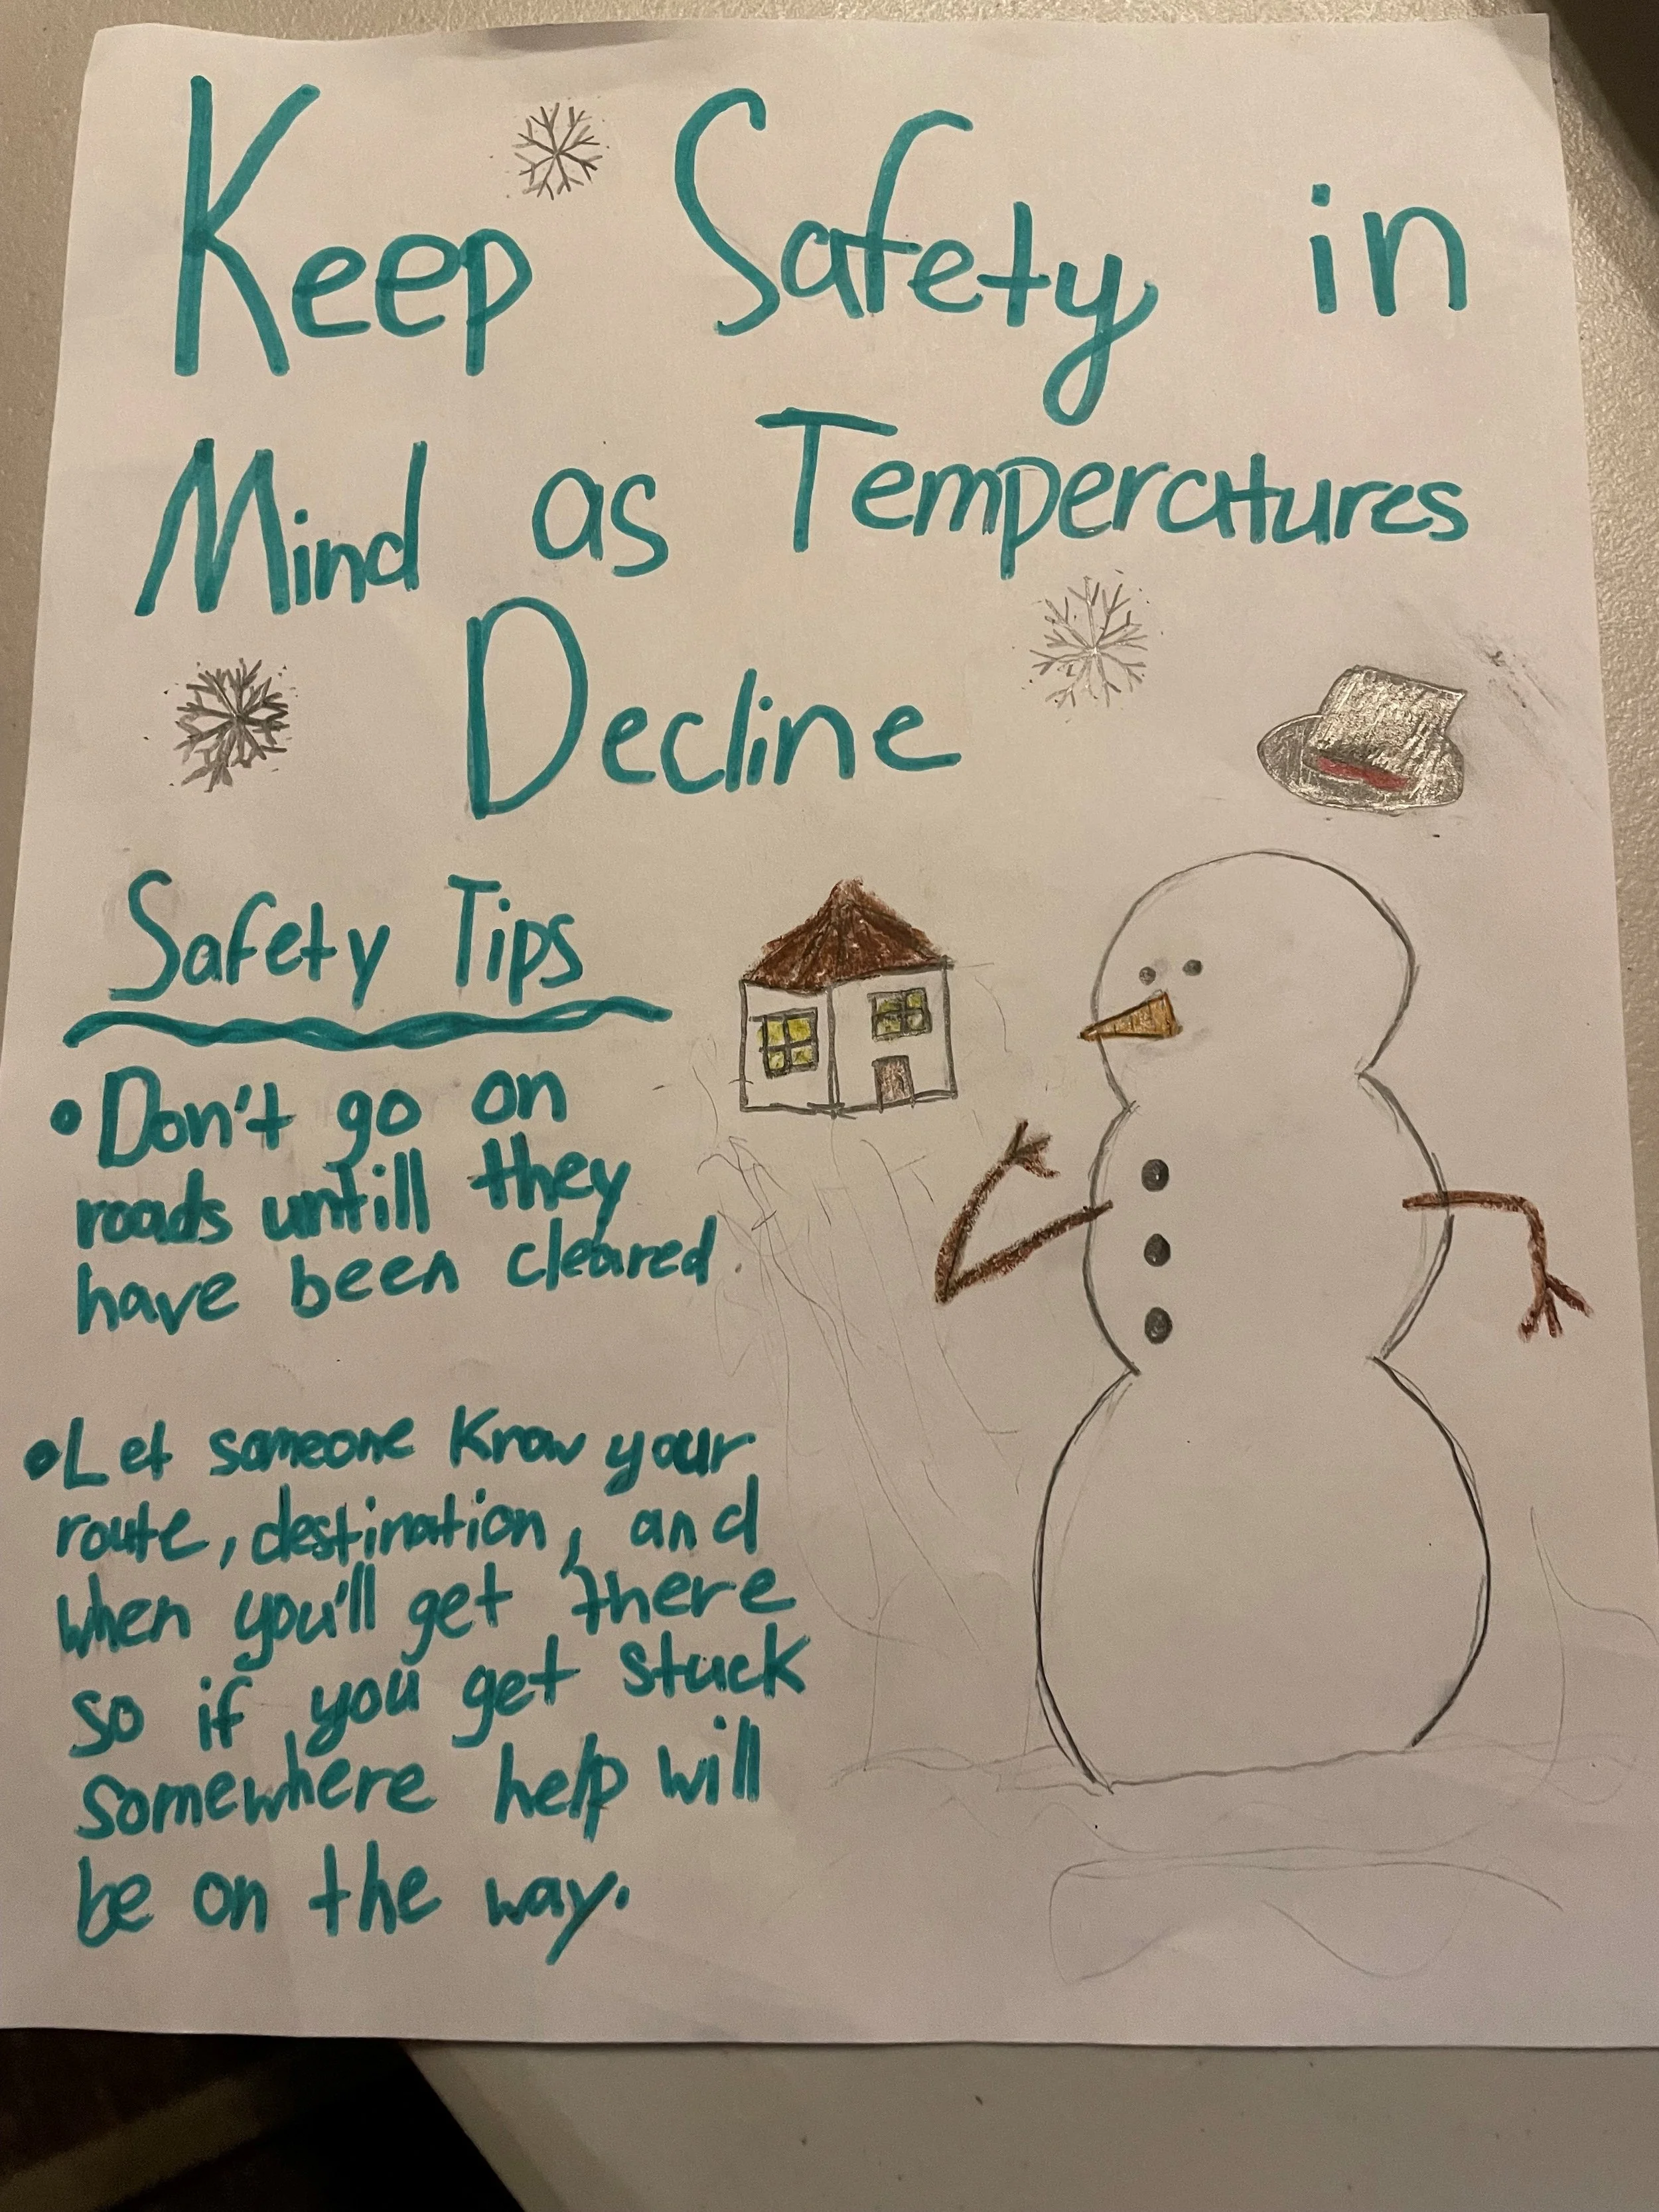 Keep Safety in
Mind as Temperatures
Decline
Safety Tips
• Don't go on
roads untill they
have been cleared
• Let someone know your
route, destination, and
when you'll get there
so if you get stuck
somewhere help will
be on the way.